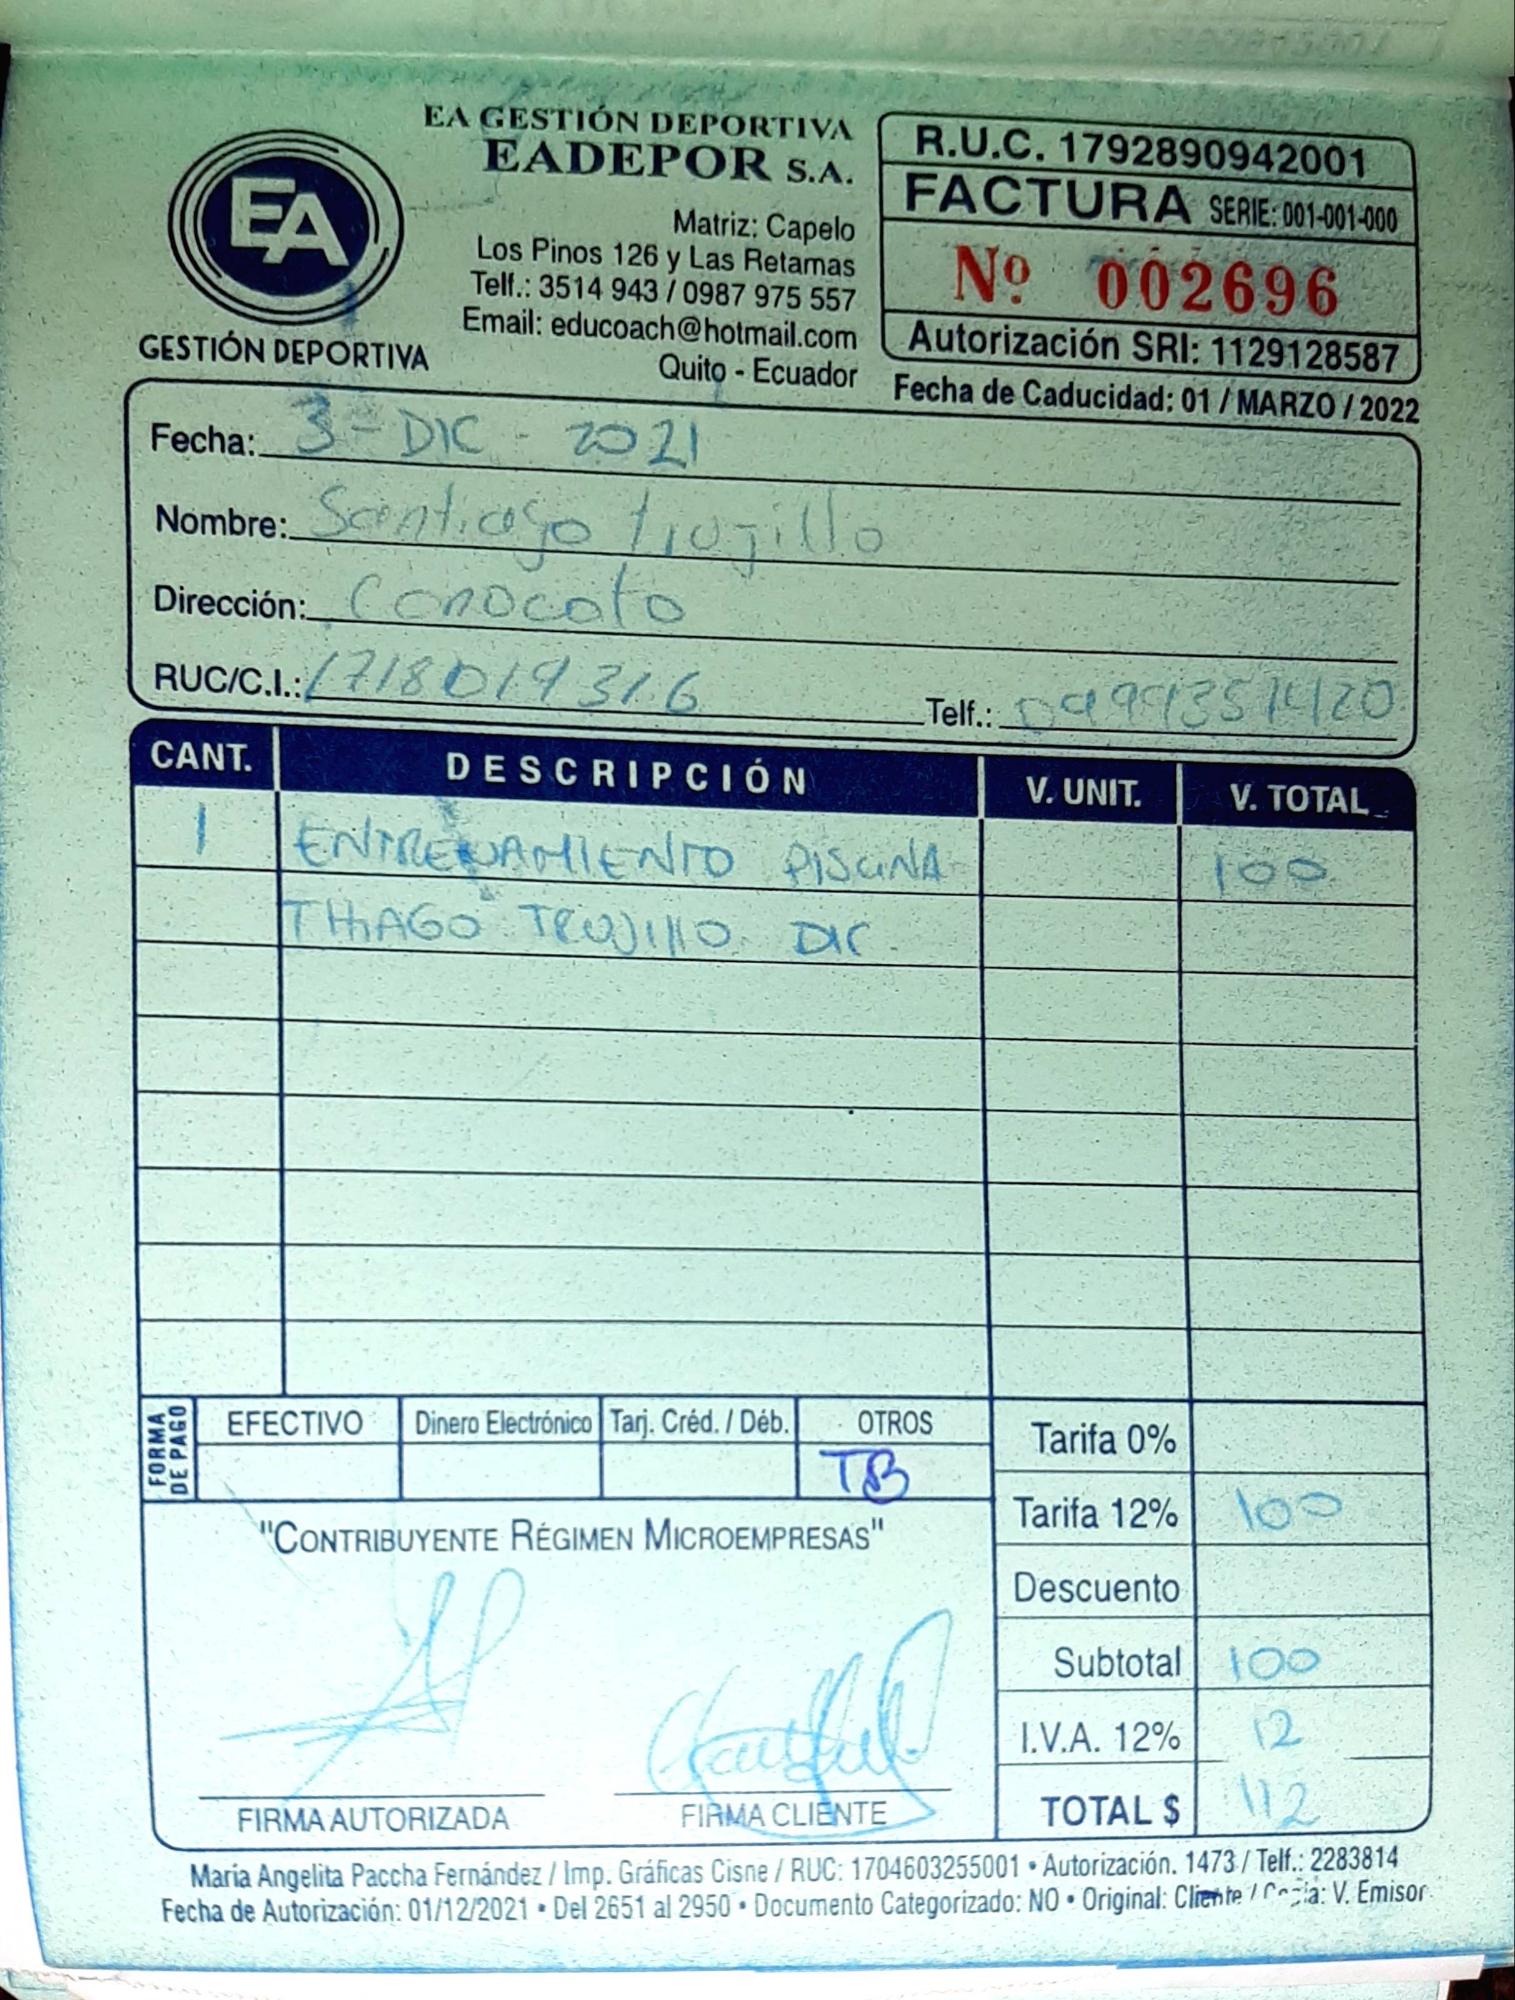 EA GESTIÓN DEPORTIVA
EADEPOR S.A.
EA
GESTIÓN DEPORTIVA
Matriz: Capelo
Los Pinos 126 y Las Retamas
Telf.: 3514 943 / 0987 975 557
Email: educoach@hotmail.com
Quito - Ecuador
R.U.C. 1792890942001
FACTURA SERIE: 001-001-000
Nº 002696
Autorización SRI: 1129128587
Fecha de Caducidad: 01 / MARZO / 2022
Fecha: 3 - DIC - 2021
Nombre: Santiago Trujillo
Dirección: Conocoto
RUC/C.I.: 1718019316 Telf.:
CANT. DESCRIPCIÓN V. UNIT. V. TOTAL
1 ENTRENAMIENTO PISCINA 100
THIAGO TRUJIllO DIC.
FORMA DE PAGO EFECTIVO Dinero Electrónico Tarj. Créd. / Déb. OTROS
TB
Tarifa 0%
Tarifa 12% 100
Descuento
Subtotal 100
I.V.A. 12% 12
TOTAL $ 112
"CONTRIBUYENTE RÉGIMEN MICROEMPRESAS"
FIRMA AUTORIZADA FIRMA CLIENTE
María Angelita Paccha Fernández / Imp. Gráficas Cisne / RUC: 1704603255001 • Autorización. 1473 / Telf.: 2283814
Fecha de Autorización: 01/12/2021 • Del 2651 al 2950 • Documento Categorizado: NO • Original: Cliente / Copia: V. Emisor